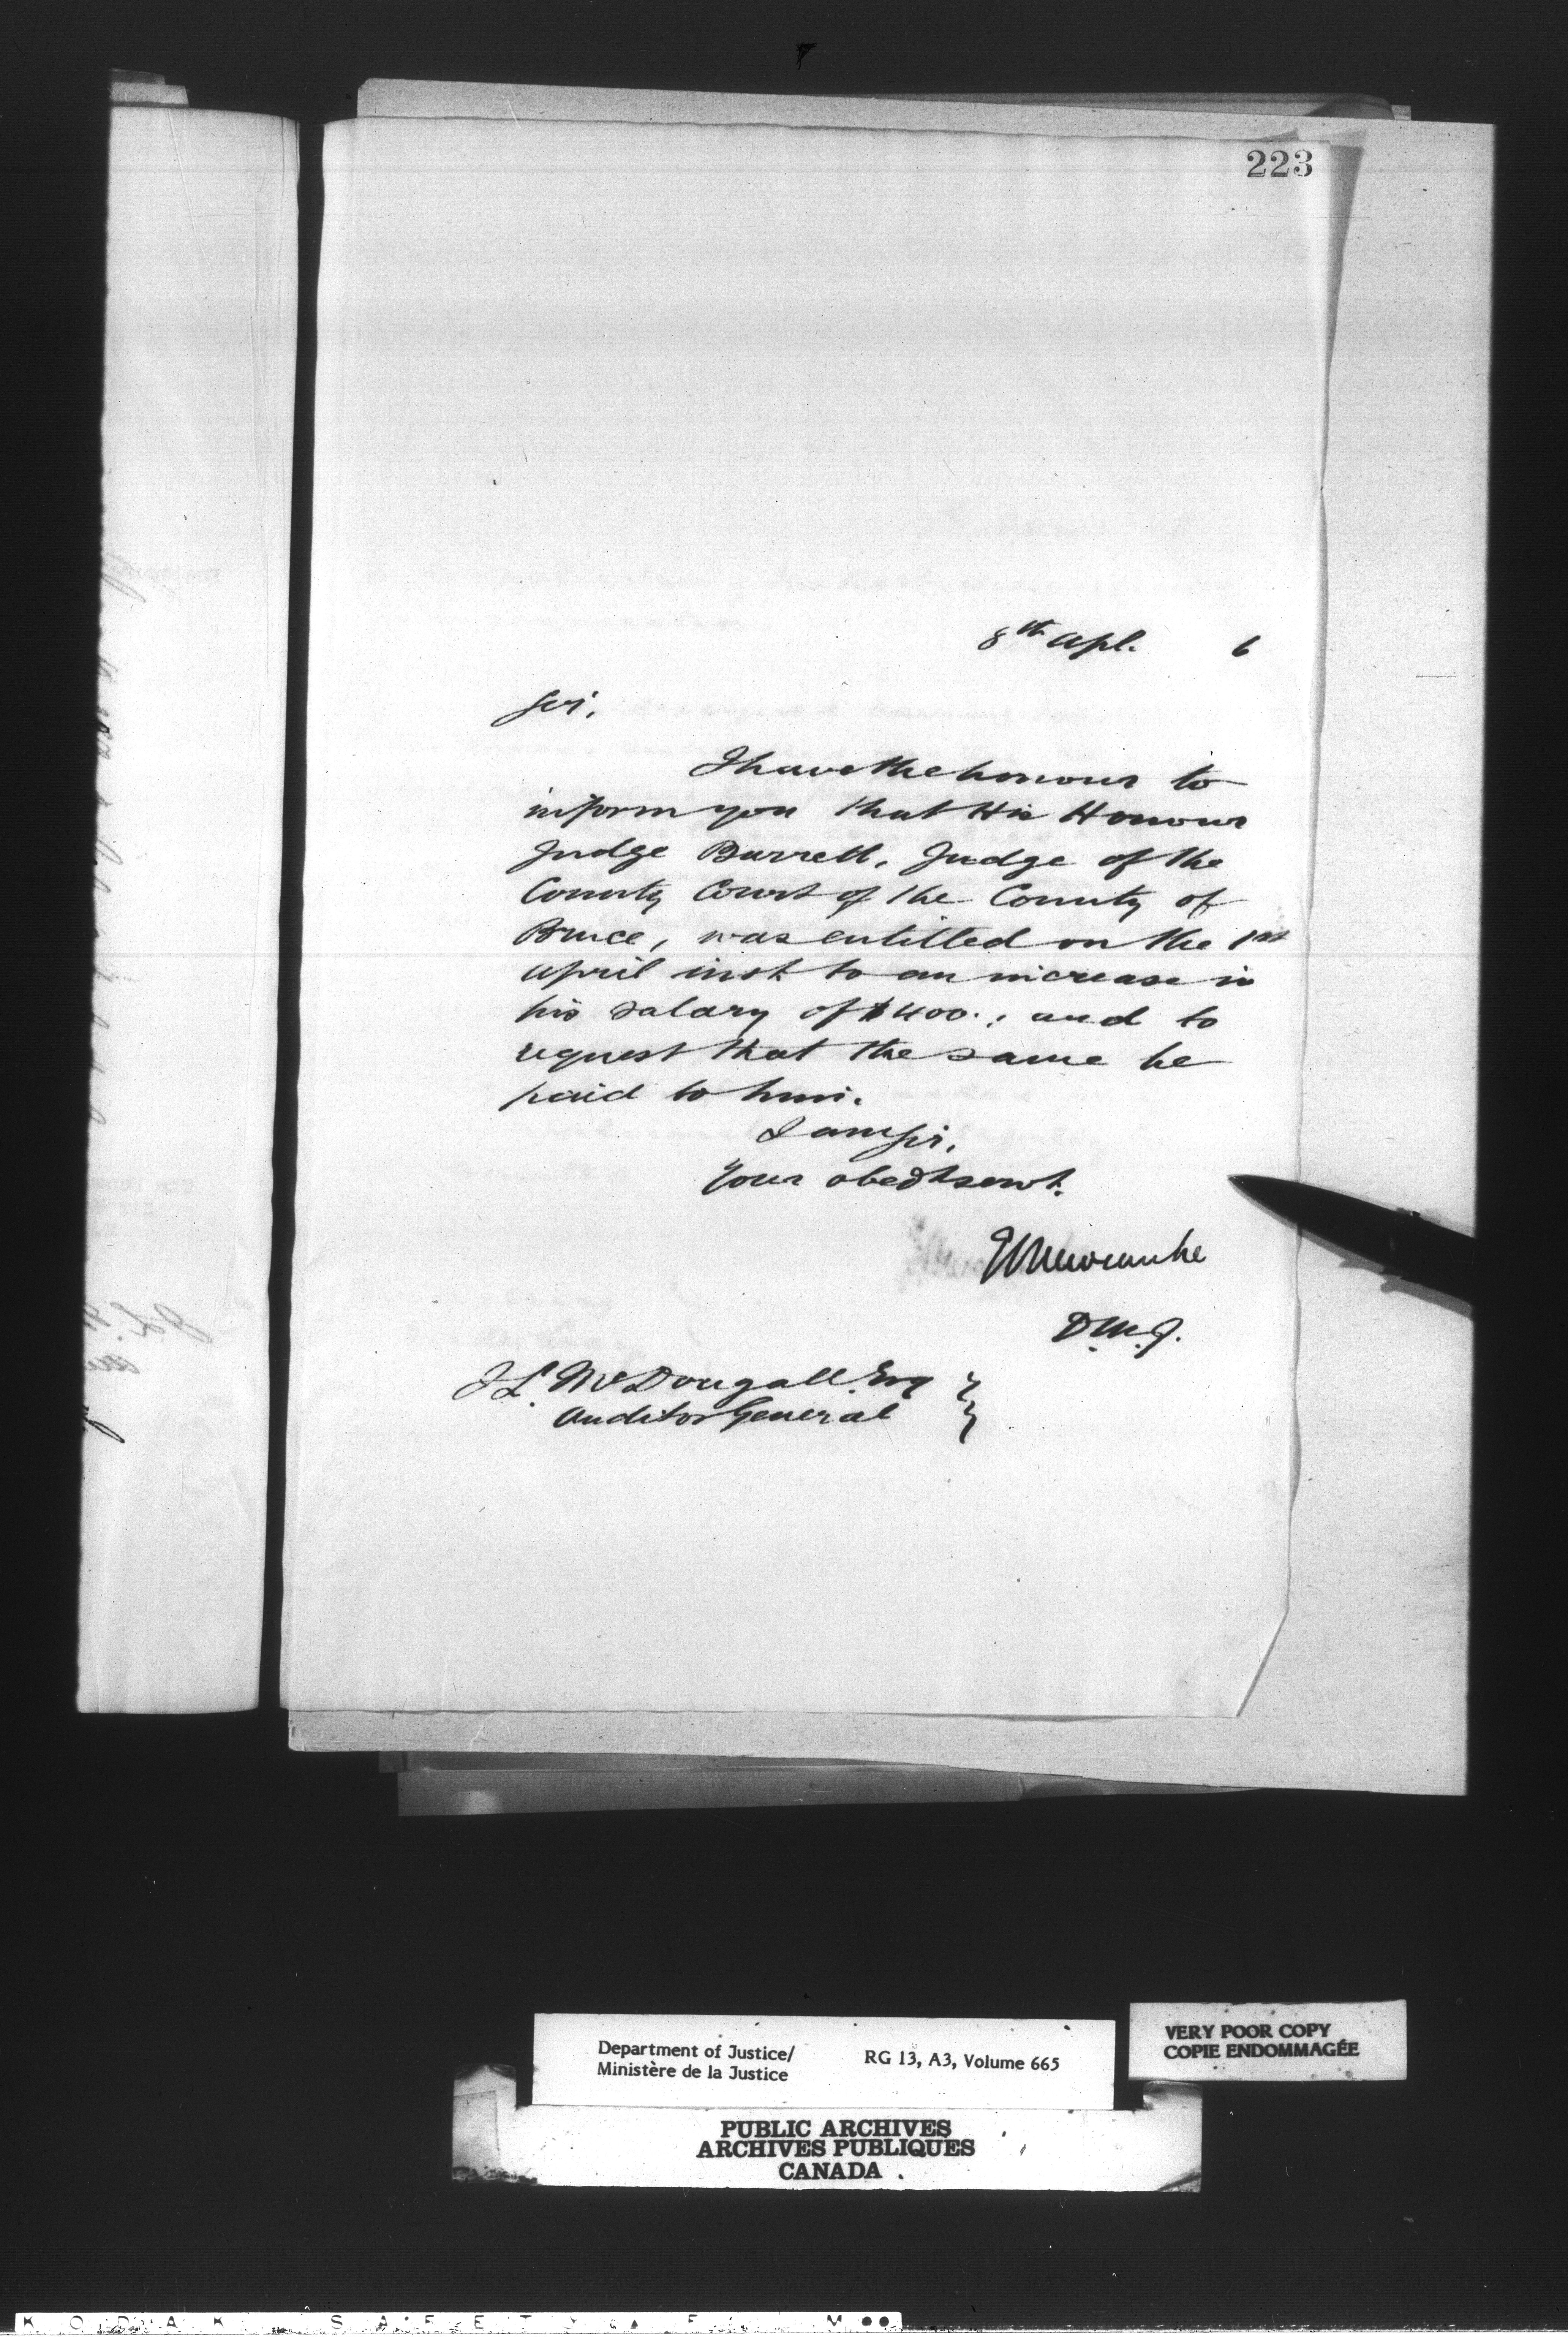 223
8th Apl. 6
Sir,
I have the honour to
inform you that His Honour
Judge Barrett, Judge of the
County Court of the County of
Bruce, was entitled on the 1st
April inst to an increase in
his salary of $400.; and to
request that the same be
paid to him.
I am Sir,
Your obedt servt.
E L Newcombe
D.M.J.
J L. McDougall. Esq
Auditor General
Department of Justice/
Ministère de la Justice
RG 13, A3, Volume 665
VERY POOR COPY
COPIE ENDOMMAGÉE
PUBLIC ARCHIVES
ARCHIVES PUBLIQUES
CANADA
KODAK SAFETY F M